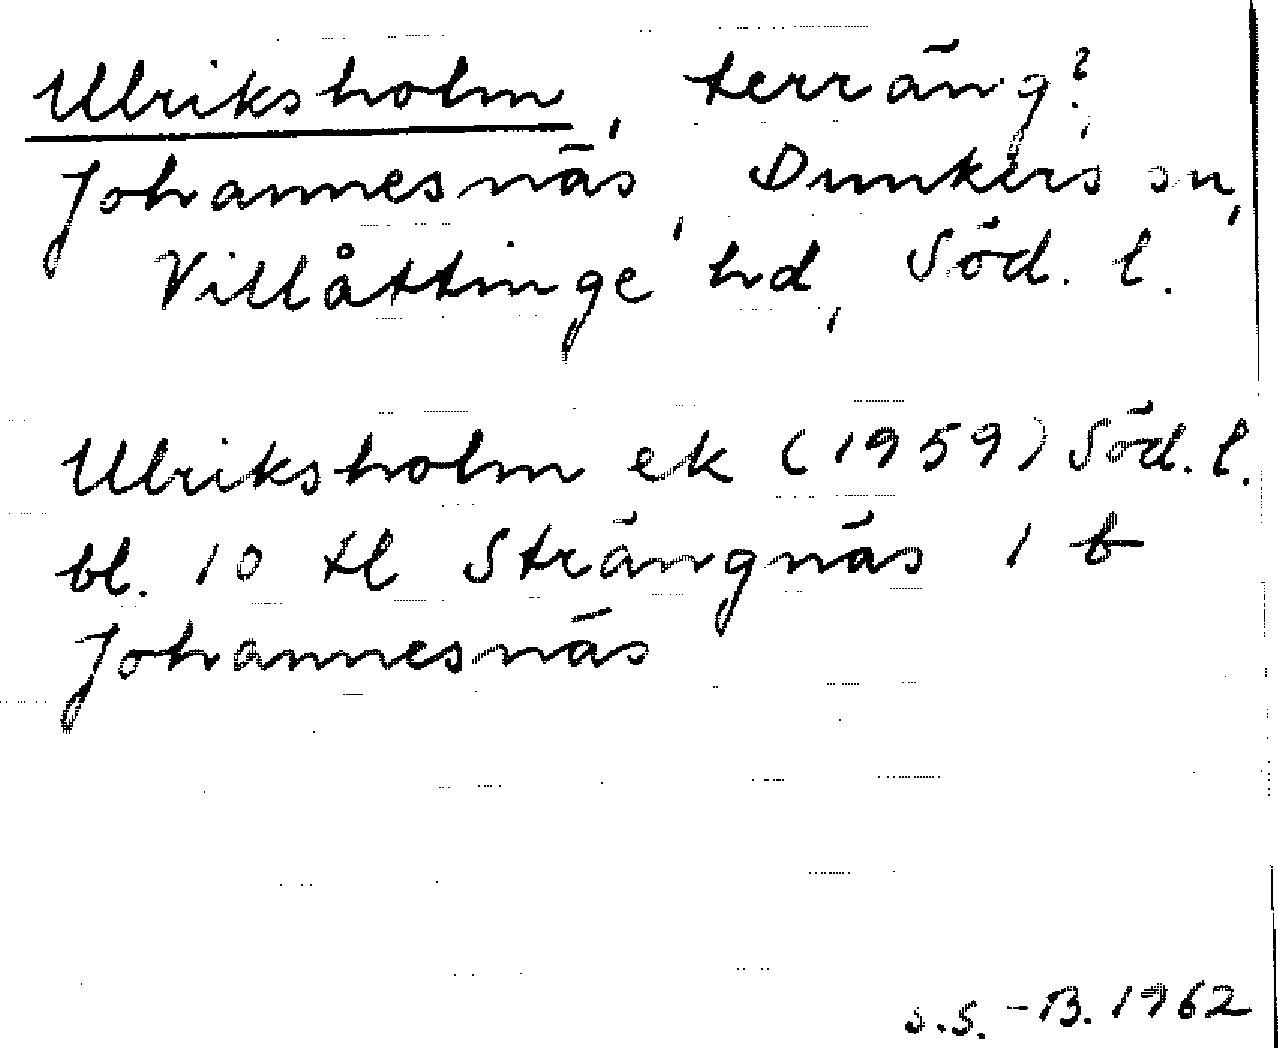 Ulriksholm, terräng?
Johannesnäs, Dunkers sn,
Villåttinge hd, Söd. l.
Ulriksholm ek (1959) Söd. l.
bl. 10 tl Strängnäs 1 b
Johannesnäs
S.S.-B. 1962